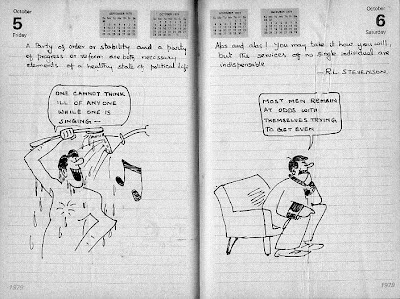 October
5
Friday
A Party of order or stability and a party
of progress or reform are both necessary
elements of a healthy state of political life
ONE CANNOT THINK
ILL OF ANYONE
WHILE ONE IS
SINGING —
1979
October
6
Saturday
Alas and alas! You may take it how you will,
but the services of no single individual are
indispensible
— R.L STEVENSON.
MOST MEN REMAIN
AT ODDS WITH
THEMSELVES TRYING
TO GET EVEN
1979